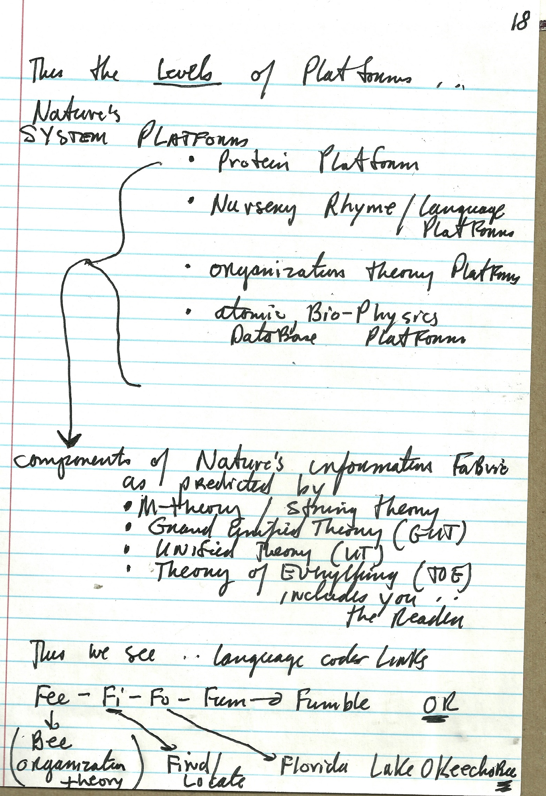 18
Thus the Levels of Platforms ...
Nature's
SYSTEM PLATFORMS
• Protein Platform
• Nursery Rhyme / Language
Platforms
• organization theory Platforms
• atomic Bio-Physics
DataBase Platforms
components of Nature's information Fabric
as predicted by
• M-theory / string theory
• Grand Unified Theory (GUT)
• Unified Theory (UT)
• Theory of Everything (TOE)
includes you ..
the Reader
Thus we see .. language coder Links
Fee - Fi - Fo - Fum → Fumble OR
(Bee
organization
theory)
Find/
Locate
Florida Lake OKeechoBee